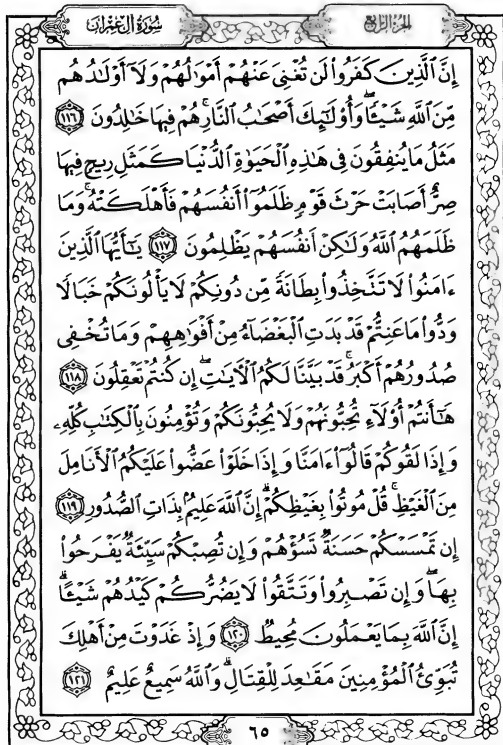 سُورَةُ آلِ عِمْرَانَ
الجُزْءُ الرَّابِعُ
إِنَّ ٱلَّذِينَ كَفَرُوا۟ لَن تُغْنِىَ عَنْهُمْ أَمْوَٰلُهُمْ وَلَآ أَوْلَٰدُهُم
مِّنَ ٱللَّهِ شَيْـًٔا ۖ وَأُو۟لَٰٓئِكَ أَصْحَٰبُ ٱلنَّارِ ۚ هُمْ فِيهَا خَٰلِدُونَ ١١٦
مَثَلُ مَا يُنفِقُونَ فِى هَٰذِهِ ٱلْحَيَوٰةِ ٱلدُّنْيَا كَمَثَلِ رِيحٍ فِيهَا
صِرٌّ أَصَابَتْ حَرْثَ قَوْمٍ ظَلَمُوٓا۟ أَنفُسَهُمْ فَأَهْلَكَتْهُ ۚ وَمَا
ظَلَمَهُمُ ٱللَّهُ وَلَٰكِنْ أَنفُسَهُمْ يَظْلِمُونَ ١١٧ يَٰٓأَيُّهَا ٱلَّذِينَ
ءَامَنُوا۟ لَا تَتَّخِذُوا۟ بِطَانَةً مِّن دُونِكُمْ لَا يَأْلُونَكُمْ خَبَالًا
وَدُّوا۟ مَا عَنِتُّمْ قَدْ بَدَتِ ٱلْبَغْضَآءُ مِنْ أَفْوَٰهِهِمْ وَمَا تُخْفِى
صُدُورُهُمْ أَكْبَرُ ۚ قَدْ بَيَّنَّا لَكُمُ ٱلْءَايَٰتِ ۖ إِن كُنتُمْ تَعْقِلُونَ ١١٨
هَٰٓأَنتُمْ أُو۟لَآءِ تُحِبُّونَهُمْ وَلَا يُحِبُّونَكُمْ وَتُؤْمِنُونَ بِٱلْكِتَٰبِ كُلِّهِۦ
وَإِذَا لَقُوكُمْ قَالُوٓا۟ ءَامَنَّا وَإِذَا خَلَوْا۟ عَضُّوا۟ عَلَيْكُمُ ٱلْأَنَامِلَ
مِنَ ٱلْغَيْظِ ۚ قُلْ مُوتُوا۟ بِغَيْظِكُمْ ۗ إِنَّ ٱللَّهَ عَلِيمٌۢ بِذَاتِ ٱلصُّدُورِ ١١٩
إِن تَمْسَسْكُمْ حَسَنَةٌ تَسُؤْهُمْ وَإِن تُصِبْكُمْ سَيِّئَةٌ يَفْرَحُوا۟
بِهَا ۖ وَإِن تَصْبِرُوا۟ وَتَتَّقُوا۟ لَا يَضُرُّكُمْ كَيْدُهُمْ شَيْـًٔا ۗ
إِنَّ ٱللَّهَ بِمَا يَعْمَلُونَ مُحِيطٌ ١٢٠ وَإِذْ غَدَوْتَ مِنْ أَهْلِكَ
تُبَوِّئُ ٱلْمُؤْمِنِينَ مَقَٰعِدَ لِلْقِتَالِ ۗ وَٱللَّهُ سَمِيعٌ عَلِيمٌ ١٢١
٦٥